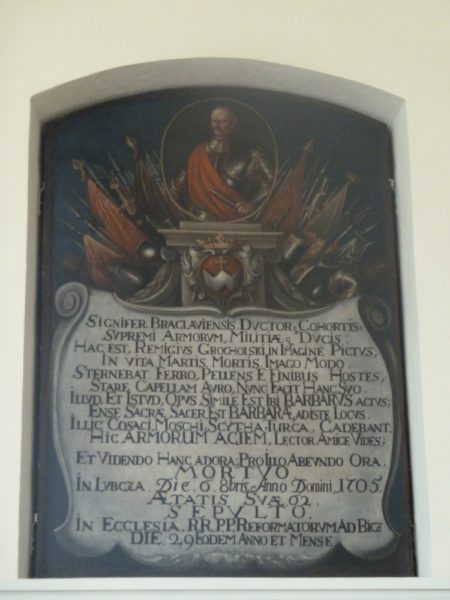 SIGNIFER BRACLAVIENSIS DUCTOR COHORTIS
SVPREMI ARMORVM, MILITIÆ q DVCIS:
HAC EST, REMIGIVS GROCHOLSKI IN IMAGINE PICTVS,
IN VITA MARTIS, MORTIS IMAGO MODO
STERNEBAT FERRO, PELLENS E FINIBVS HOSTES,
STARE CAPELLAM AVRO, NVNC FACIT HANC SVO.
ILLVD, ET ISTVD, OPVS SIMILE EST IBI BARBARVS ACTVS,
ENSE SACRÆ, SACER EST BARBARÆ, ADISTE LOCVS.
ILLIC COSACI, MOSCHI, SCYTHA, TVRCA, CADEBANT.
HIC ARMORUM ACIEM, LECTOR AMICE VIDES;
ET VIDENDO HANC ADORA; PRO ILLO ABEVNDO ORA.
MORTVO
IN LVBCZA. Die. 6. 8bris. Anno Domini 1705.
ÆTATIS SVÆ 62.
SEPVLTO
IN ECCLESIA. RR.PP. REFORMATORVM AD BICZ
DIE. 29 EODEM ANNO ET MENSE